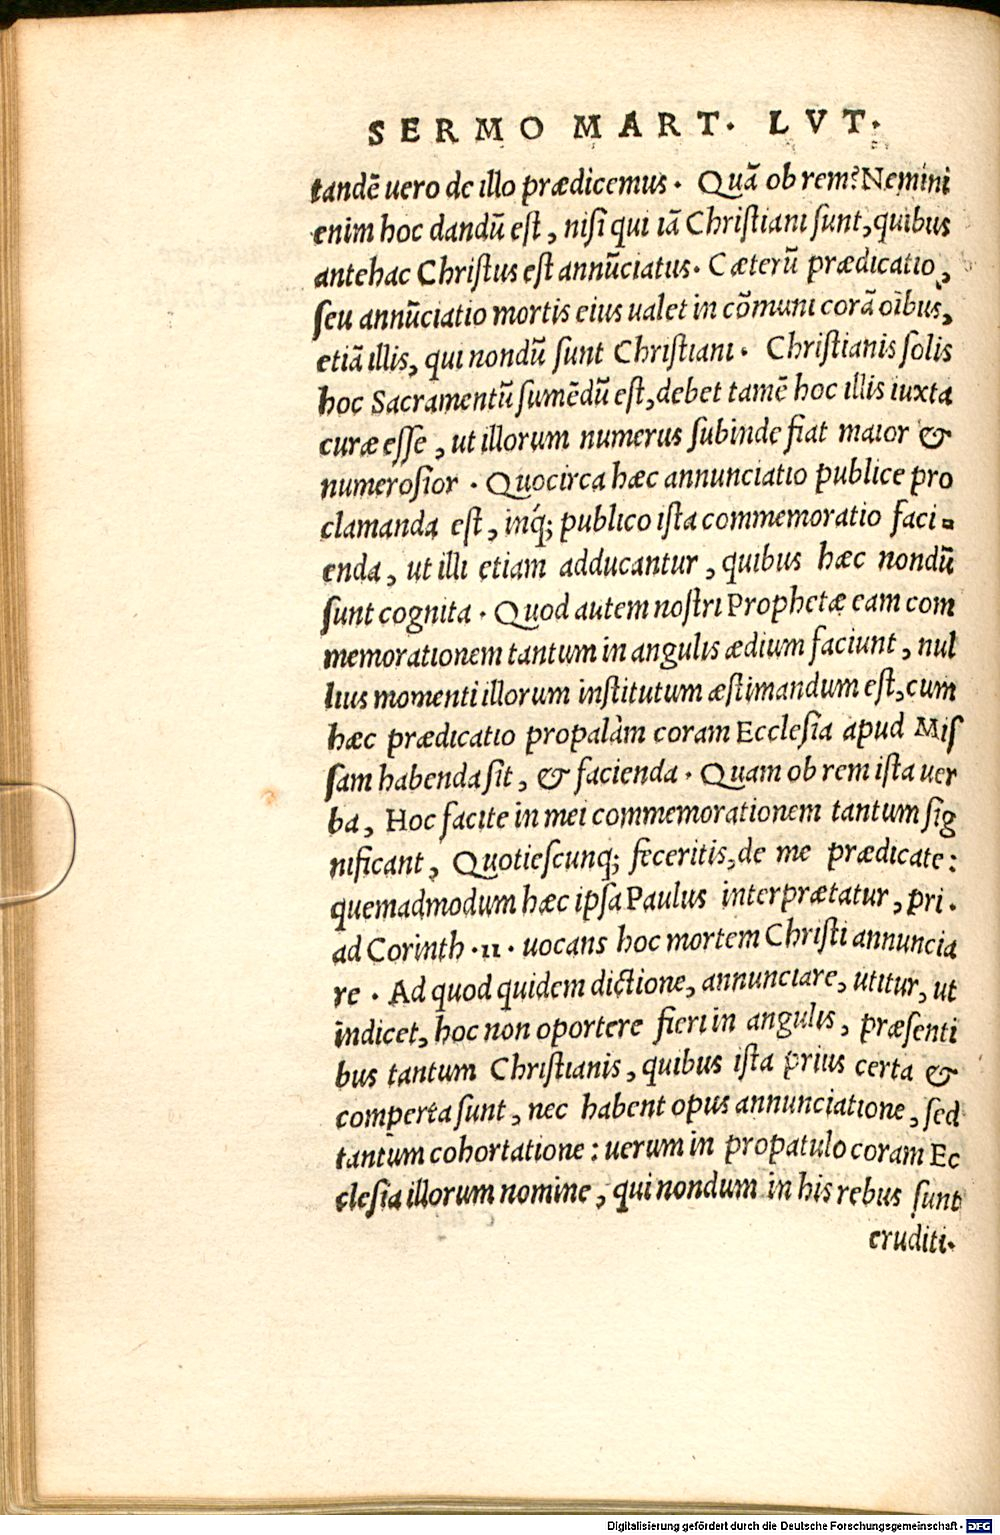 SERMO MART. LVT.
tandē uero de illo prædicemus. Quã ob rem? Nemini
enim hoc dandū est, nisi qui iã Christiani sunt, quibus
antehac Christus est annūciatus. Cæterū prædicatio,
seu annūciatio mortis eius ualet in cōmuni corã oībus,
etiã illis, qui nondū sunt Christiani. Christianis solis
hoc Sacramentū sumēdū est, debet tamē hoc illis iuxta
curæ esse, ut illorum numerus subinde fiat maior &
numerosior. Quocirca hæc annunciatio publice pro
clamanda est, inq́; publico ista commemoratio faci=
enda, ut illi etiam adducantur, quibus hæc nondū
sunt cognita. Quod autem nostri Prophetæ eam com
memorationem tantum in angulis ædium faciunt, nul
lius momenti illorum institutum æstimandum est, cum
hæc prædicatio propalàm coram Ecclesia apud Mis
sam habenda sit, & facienda. Quam ob rem ista uer
ba, Hoc facite in mei commemorationem tantum sig
nificant, Quotiescunq; feceritis, de me prædicate:
quemadmodum hæc ipsa Paulus interprætatur, pri.
ad Corinth .11. uocans hoc mortem Christi annuncia
re. Ad quod quidem dictione, annunciare, utitur, ut
indicet, hoc non oportere fieri in angulis, præsenti
bus tantum Christianis, quibus ista prius certa &
comperta sunt, nec habent opus annunciatione, sed
tantum cohortatione: uerum in propatulo coram Ec
clesia illorum nomine, qui nondum in his rebus sunt
eruditi.
Digitalisierung gefördert durch die Deutsche Forschungsgemeinschaft - DFG